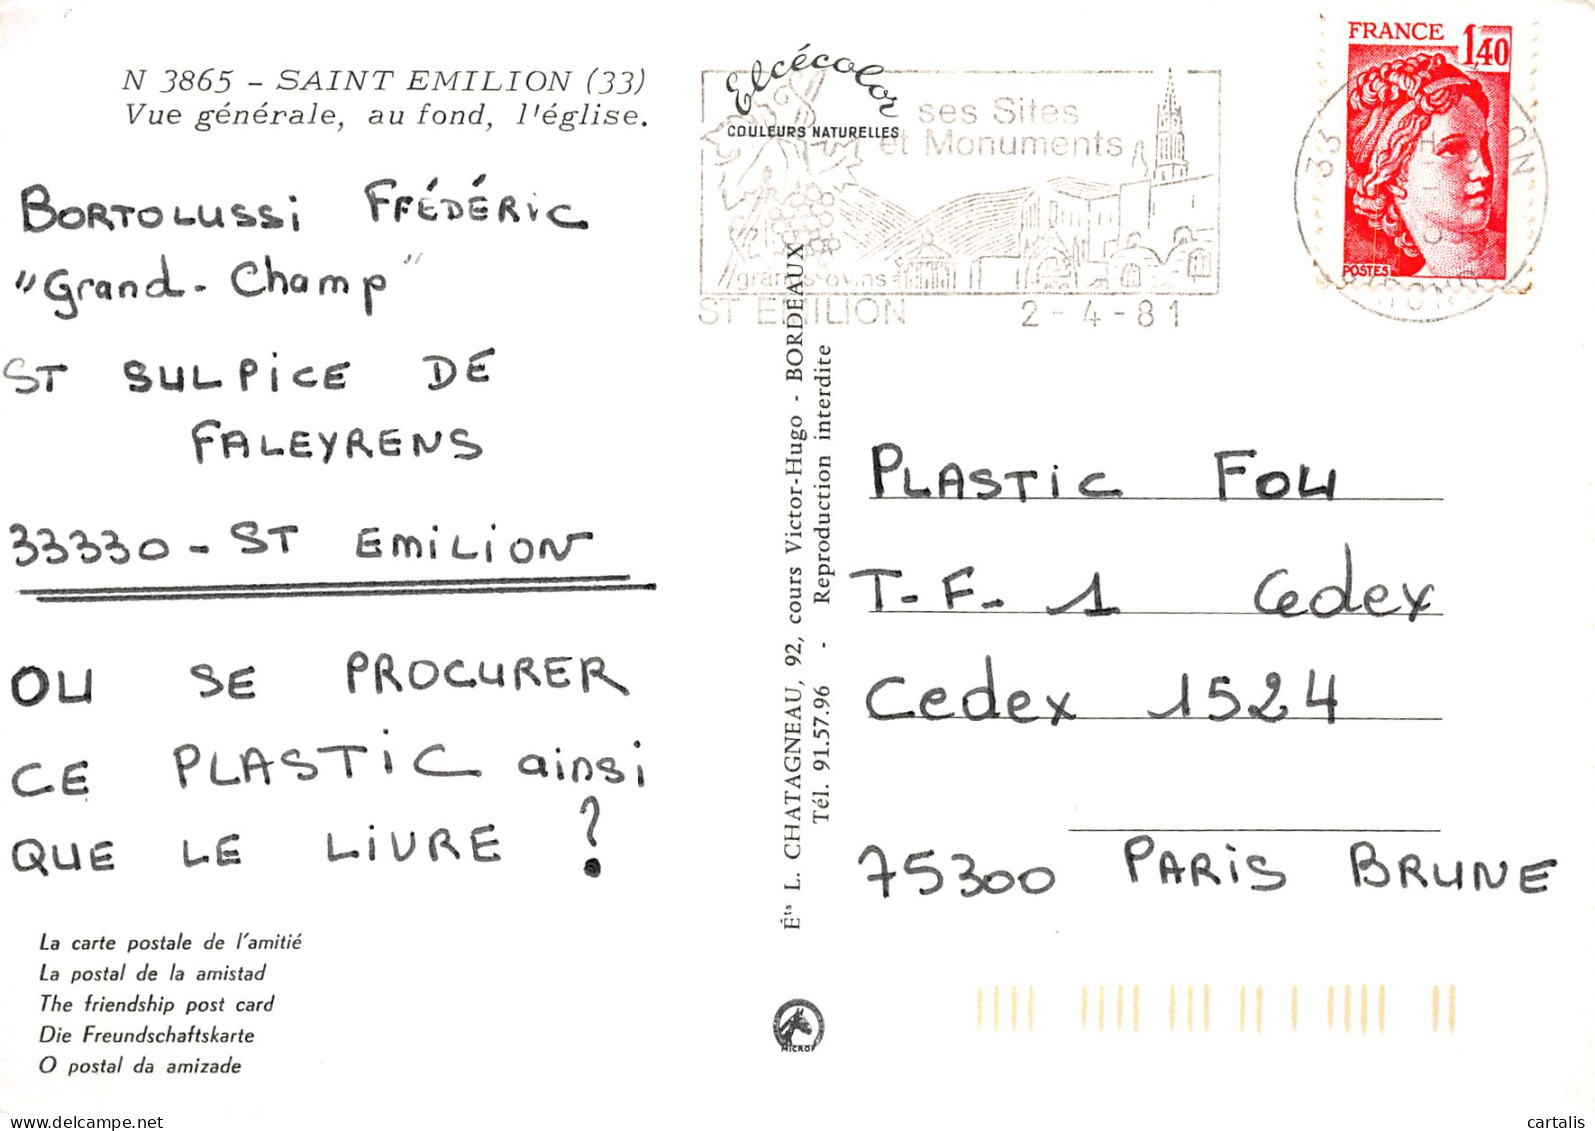 N 3865 - SAINT EMILION (33)
Vue générale, au fond, l'église.
BORTOLUSSI FRÉDÉRIC
"Grand-Champ"
ST SULPICE DE
FALEYRENS
33330 - ST EMILION
OU SE PROCURER
CE PLASTIC ainsi
QUE LE LIVRE ?
La carte postale de l'amitié
La postal de la amistad
The friendship post card
Die Freundschaftskarte
O postal da amizade
Elcécolor
COULEURS NATURELLES
ses Sites
et Monuments
ST EMILION 2-4-81
FRANCE 1,40
POSTES
33
Éts L. CHATAGNEAU, 92, cours Victor-Hugo - BORDEAUX
Tél. 91.57.96 - Reproduction interdite
PLASTIC FOU
T-F-1 Cedex
Cedex 1524
75300 PARIS BRUNE
MICROF
delcampe.net
cartalis